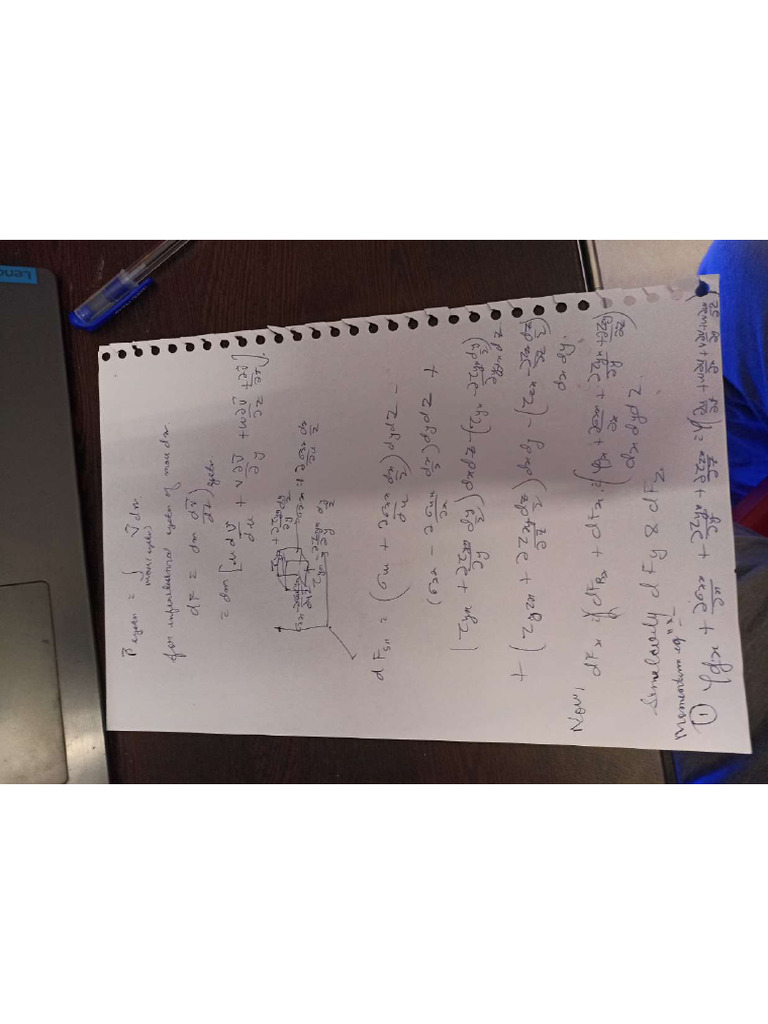 P⃗ system = ∫ mass(system) V⃗ dm
for infinitesimal system of mass dm
dF⃗ = dm dV⃗/dt) system
= dm [u ∂V⃗/∂u + v ∂V⃗/∂y + w ∂V⃗/∂z + ∂V⃗/∂t].
dFsx = (σxx + ∂σxx/∂x dx/2) dydz -
(σxx - ∂σxx/∂x dx/2) dydz +
(τyx + ∂τyx/∂y dy/2) dxdz - (τyx - ∂τyx/∂y dy/2) dxdz
+ (τzx + ∂τzx/∂z dz/2) dxdy - (τzx - ∂τzx/∂z dz/2) dxdy.
Now,
dFx = dFBx + dFsx = (ρgx + ∂σxx/∂x + ∂τyx/∂y + ∂τzx/∂z) dxdydz.
Similarly dFy & dFz.
Momentum eqⁿ:-
① ρgx + ∂σxx/∂x + ∂τyx/∂y + ∂τzx/∂z = ρ(∂u/∂t + u∂u/∂x + v∂u/∂y + w∂u/∂z)
Leno